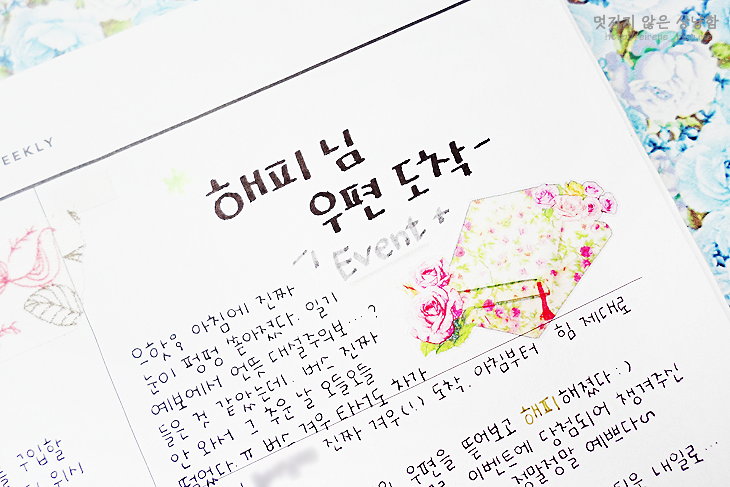 멋가지 않은 상냥함
WEEKLY
해피 님
우편 도착~
Event +
으핫옷 아침에 진짜
눈이 펑펑 쏟아졌다. 일기
예보에서 언뜻 대설주의보...?
들은 것 같았는데. 버스 진짜
안 와서 그 추운 날 오들오들
떨었다. ㅠ 버스 겨우 타서도 차가 힘 제대로
진짜 겨우(!) 도착. 아침부터
우편을 뜯어보고 해피해졌다 :)
이벤트에 당첨되어 챙겨주신
정말정말 예쁘다
내일로...
구입할
위시